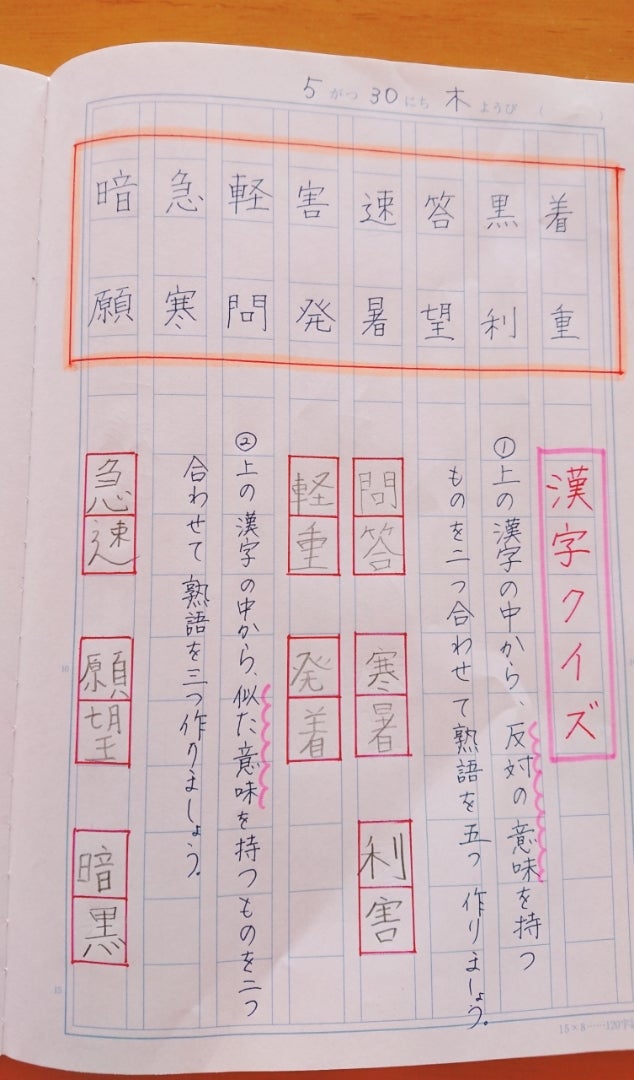 5がつ30にち 木ようび（ ）
着 重
黒 利
答 望
速 暑
害 発
軽 問
急 寒
暗 願
漢字クイズ
①上の漢字の中から、反対の意味を持つ
ものを二つ合わせて熟語を五つ作りましょう。
問答 寒暑 利害
軽重 発着
②上の漢字の中から、似た意味を持つものを二つ
合わせて熟語を三つ作りましょう。
急速 願望 暗黒
10
15